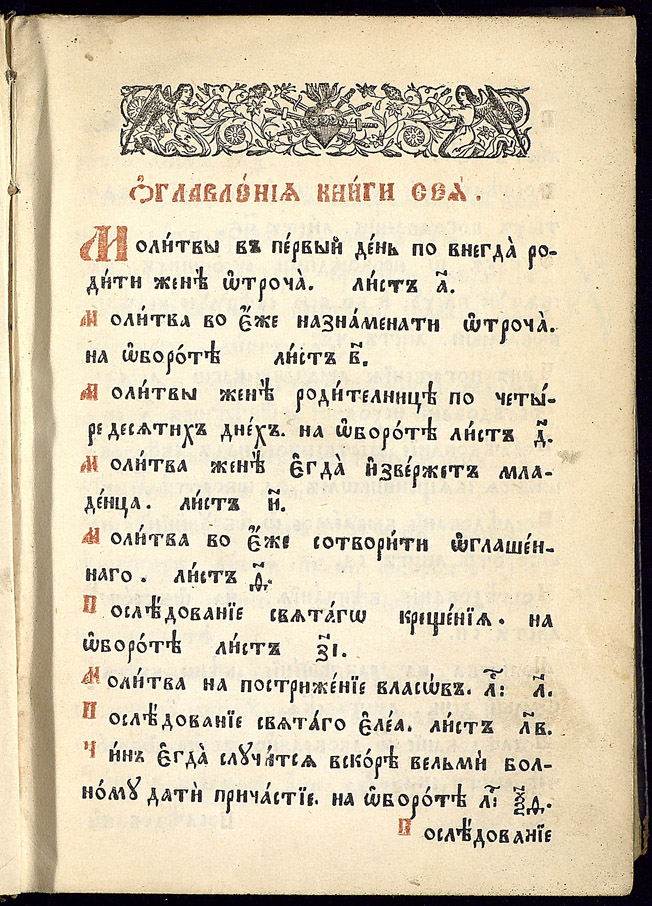 Ѻ҆ГЛАВЛЄ́НІѦ КНИ́ГИ СЕѦ̀ .
Моли́твы въ пе́рвый де́нь по внегда̀ ро-
ди́ти женѣ̀ ѿтроча̀. ли́стъ а҃.
Моли́тва во є҆́же назна́менати ѿтроча̀.
на ѡ҆боро́тѣ ли́стъ в҃.
Моли́твы женѣ̀ роди́телницѣ по четы́-
редесятихъ дне́хъ. на ѡ҆боро́тѣ ли́стъ д҃.
Моли́тва женѣ̀ є҆гда̀ и҆зве́ржетъ мла-
де́нца. ли́стъ и҃.
Моли́тва во є҆́же сотвори́ти ѡ҆глаше́н-
наго. ли́стъ д҃.
Послѣ́дованїе свята́гѡ креще́нїѧ. на
ѡ҆боро́тѣ ли́стъ з҃і.
Моли́тва на постриже́нїе власѡ́въ. л҃і: л҃.
Послѣ́дованїе свята́го є҆ле́а. ли́стъ л҃в.
Чи́нъ є҆гда̀ случи́тся вско́рѣ вельмѝ бол-
но́мꙋ да́ти прича́стїе. на ѡ҆боро́тѣ л҃і
Послѣ́дованїе